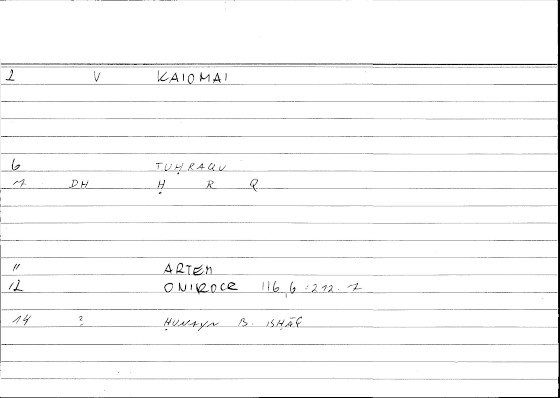 2 V KAIOMAI
6 TUḤRAQU
7 DH Ḥ R Q
11 ARTEM
12 ONIROCR 116,6 = 212.7
14 ? ḤUNAYN B. ISḤĀQ